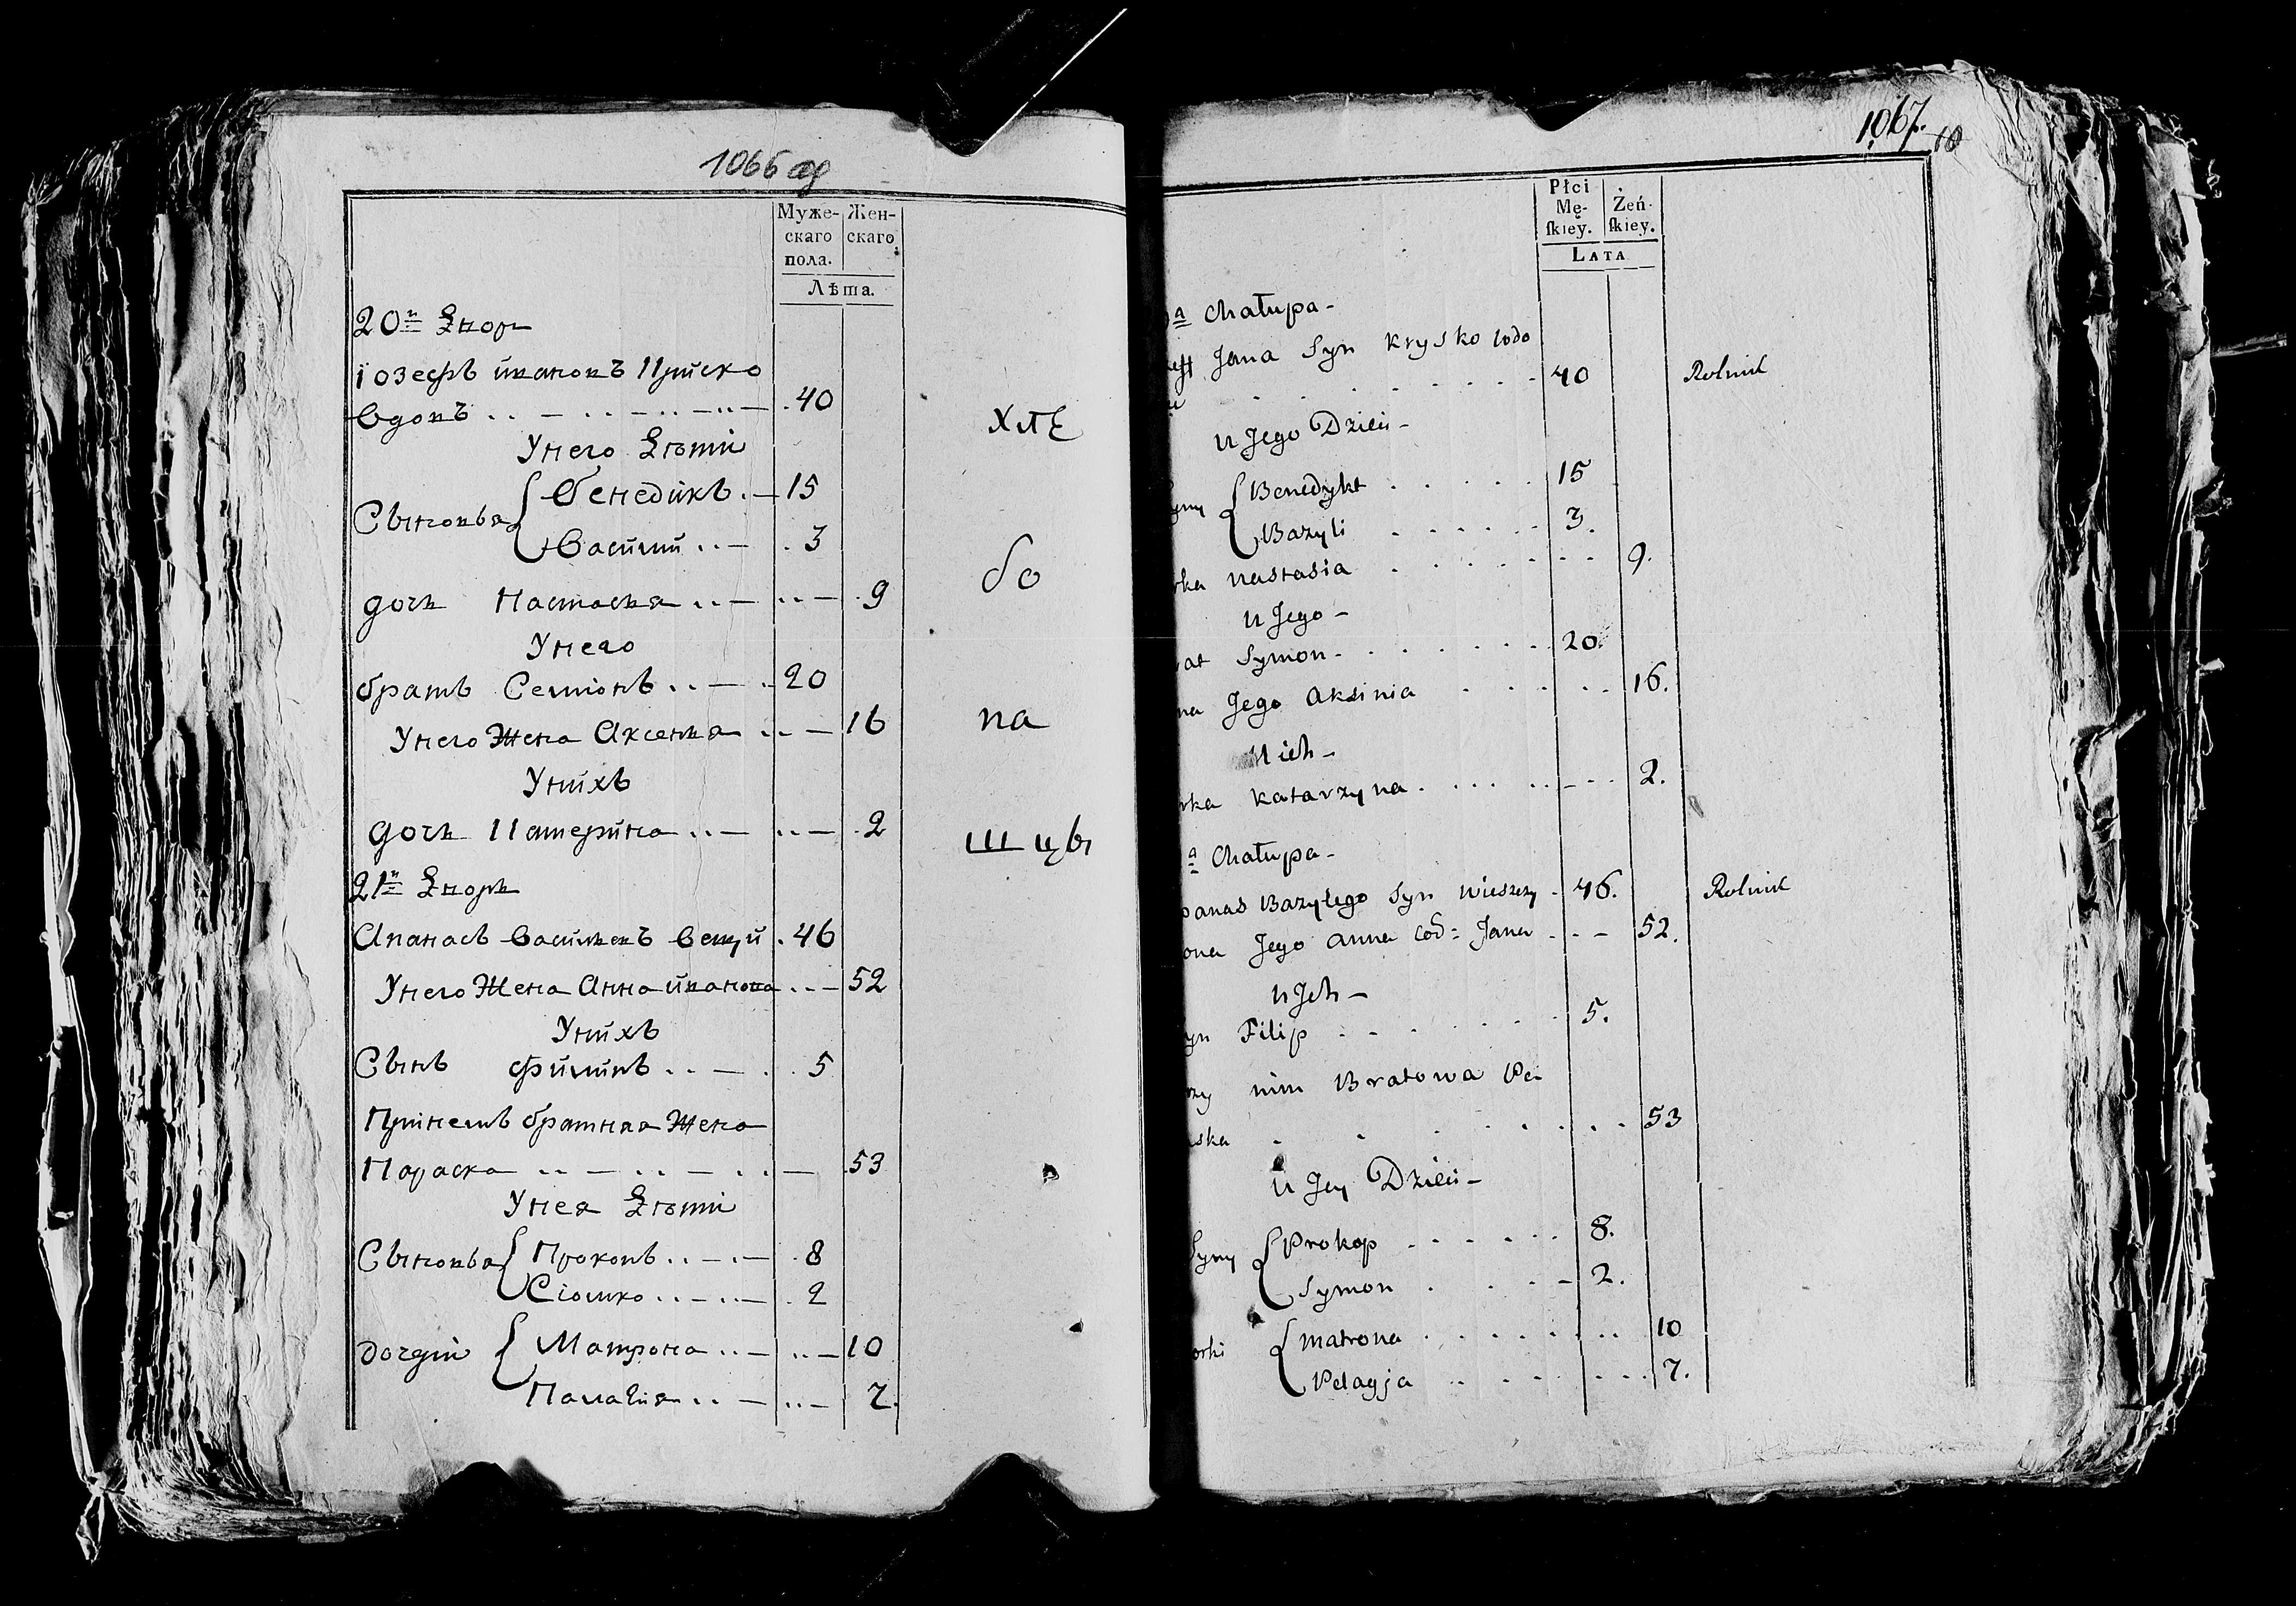 1066 об
Муже-
скаго
пола.
Жен-
скаго
Лѣта.
20й Дворъ
іозефъ ивановъ Криско
вдовъ 40
Унего Дѣти
Сыновья { бенедикъ 15
василій 3
дочь Настасья 9
Унего
братъ Семіонъ 20
Унего Жена Аксенья 16
Унихъ
дочь Катерина 2
21й Дворъ
Апанасъ васильевъ вещи 46
Унего Жена Анна иванова 52
Унихъ
Сынъ филипъ 5
Принемъ братняя Жена
Параска 53
Унея Дѣти
Сыновья { Прокопъ 8
Сіомко 2
дочери { Матрона 10
Палагія 7.
хлѣ
бо
па
шцы
1067.
10
Płci
Mę-
skiey.
Żeń-
skiey.
LATA
a Chałupa -
zeff Jana Syn Krysko wdo
40 Rolnik
u Jego Dzieci -
yny { Benedykt 15
Bazyli 3.
rka Nastasia 9.
u Jego -
at Symon 20.
na Jego Aksinia 16.
u ich -
rka Katarzyna 2.
a Chałupa -
panas Bazylego Syn Wieszczy 46. Rolnik
ona Jego Anna Cod: Jana 52.
u Jch -
yn Filip 5.
rzy nim Bratowa Pa-
ska 53
u Jey Dzieci -
Syny { Prokop 8.
Symon 2.
orki { Matrona 10
Pelagja 7.